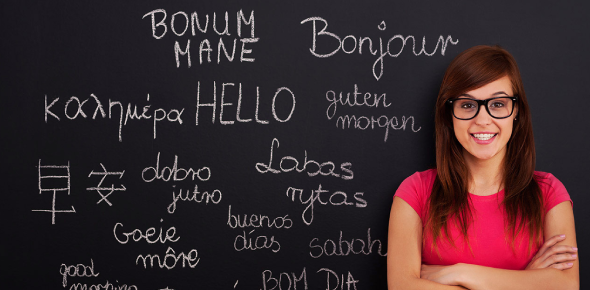 BONUM
MANE
Bonjour
καλημέρα
HELLO
guten
morgen
早安
dobro
jutro
Labas
rytas
Goeie
môre
buenos
días
sabah
good
morning
BOM DIA